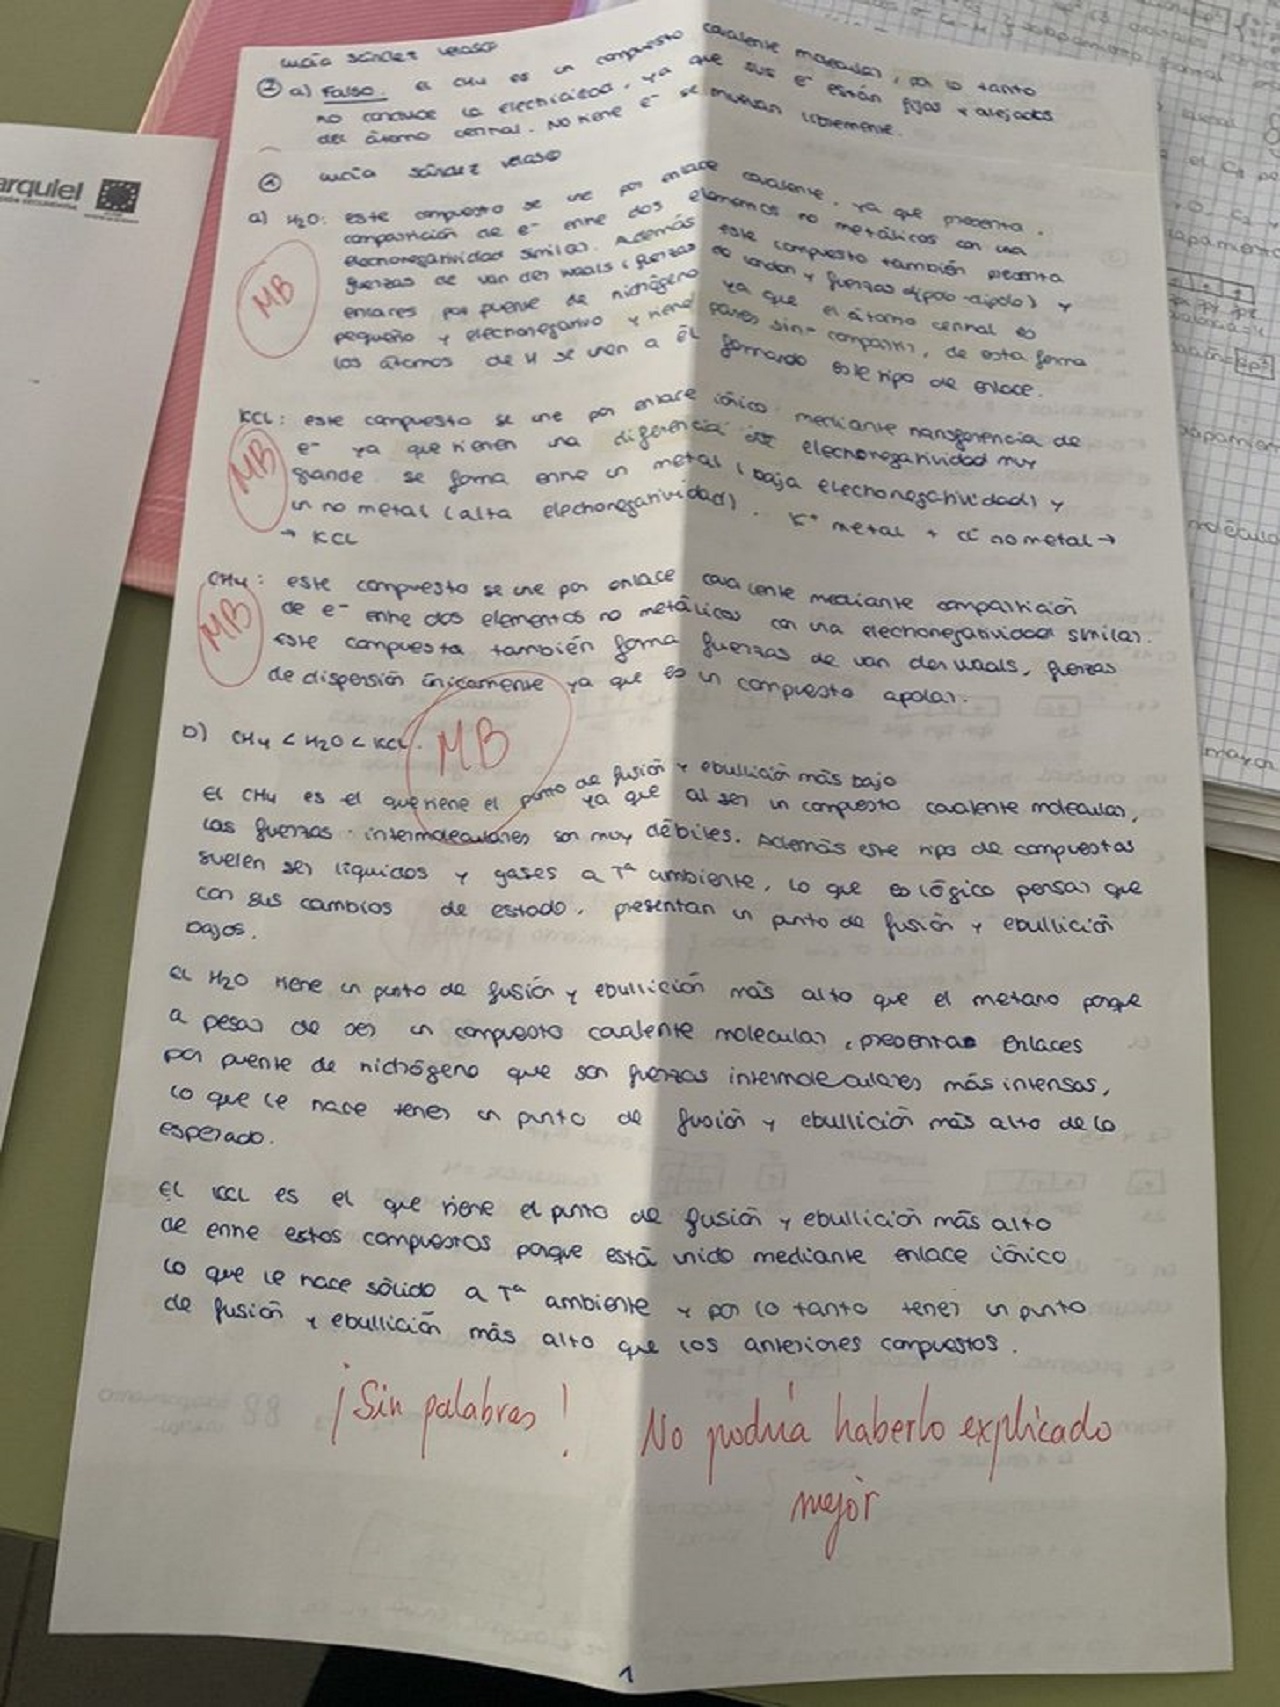 Lucía Sández Velasco
② a) Falso. El CH4 es un compuesto covalente molecular, por lo tanto
no conduce la electricidad, ya que sus e⁻ están fijos y alejados
del átomo central. No tiene e⁻ se muevan libremente.
④ Lucía Sández Velasco
a) H2O: este compuesto se une por enlace covalente, ya que presenta
compartición de e⁻ entre dos elementos no metálicos con una
electronegatividad similar. Además este compuesto también presenta
fuerzas de van der waals (fuerzas de london y fuerzas dipolo-dipolo) y
enlaces por puente de hidrógeno ya que el átomo central es
pequeño y electronegativo y tiene pares sin compartir, de esta forma
los átomos de H se unen a él formando este tipo de enlace.
MB
KCl: este compuesto se une por enlace iónico mediante transferencia de
e⁻ ya que tienen una diferencia de electronegatividad muy
grande se forma entre un metal (baja electronegatividad) y
un no metal (alta electronegatividad). K⁺ metal + Cl⁻ no metal →
→ KCl
MB
CH4: este compuesto se une por enlace covalente mediante compartición
de e⁻ entre dos elementos no metálicos con una electronegatividad similar.
este compuesta también forma fuerzas de van der waals, fuerzas
de dispersión únicamente ya que es un compuesto apolar.
MB
b) CH4 < H2O < KCl.
MB
El CH4 es el que tiene el punto de fusión y ebullición más bajo
ya que al ser un compuesto covalente molecular,
las fuerzas intermoleculares son muy débiles. Además este tipo de compuestos
suelen ser líquidos y gases a Tª ambiente, lo que es lógico pensar que
con sus cambios de estado, presentan un punto de fusión y ebullición
bajos.
El H2O tiene un punto de fusión y ebullición más alto que el metano porque
a pesar de ser un compuesto covalente molecular, presenta enlaces
por puente de hidrógeno que son fuerzas intermoleculares más intensas,
lo que le hace tener un punto de fusión y ebullición más alto de lo
esperado.
El KCl es el que tiene el punto de fusión y ebullición más alto
de entre estos compuestos porque está unido mediante enlace iónico
lo que le hace sólido a Tª ambiente y por lo tanto tener un punto
de fusión y ebullición más alto que los anteriores compuestos.
¡Sin palabras! No podría haberlo explicado
mejor
1